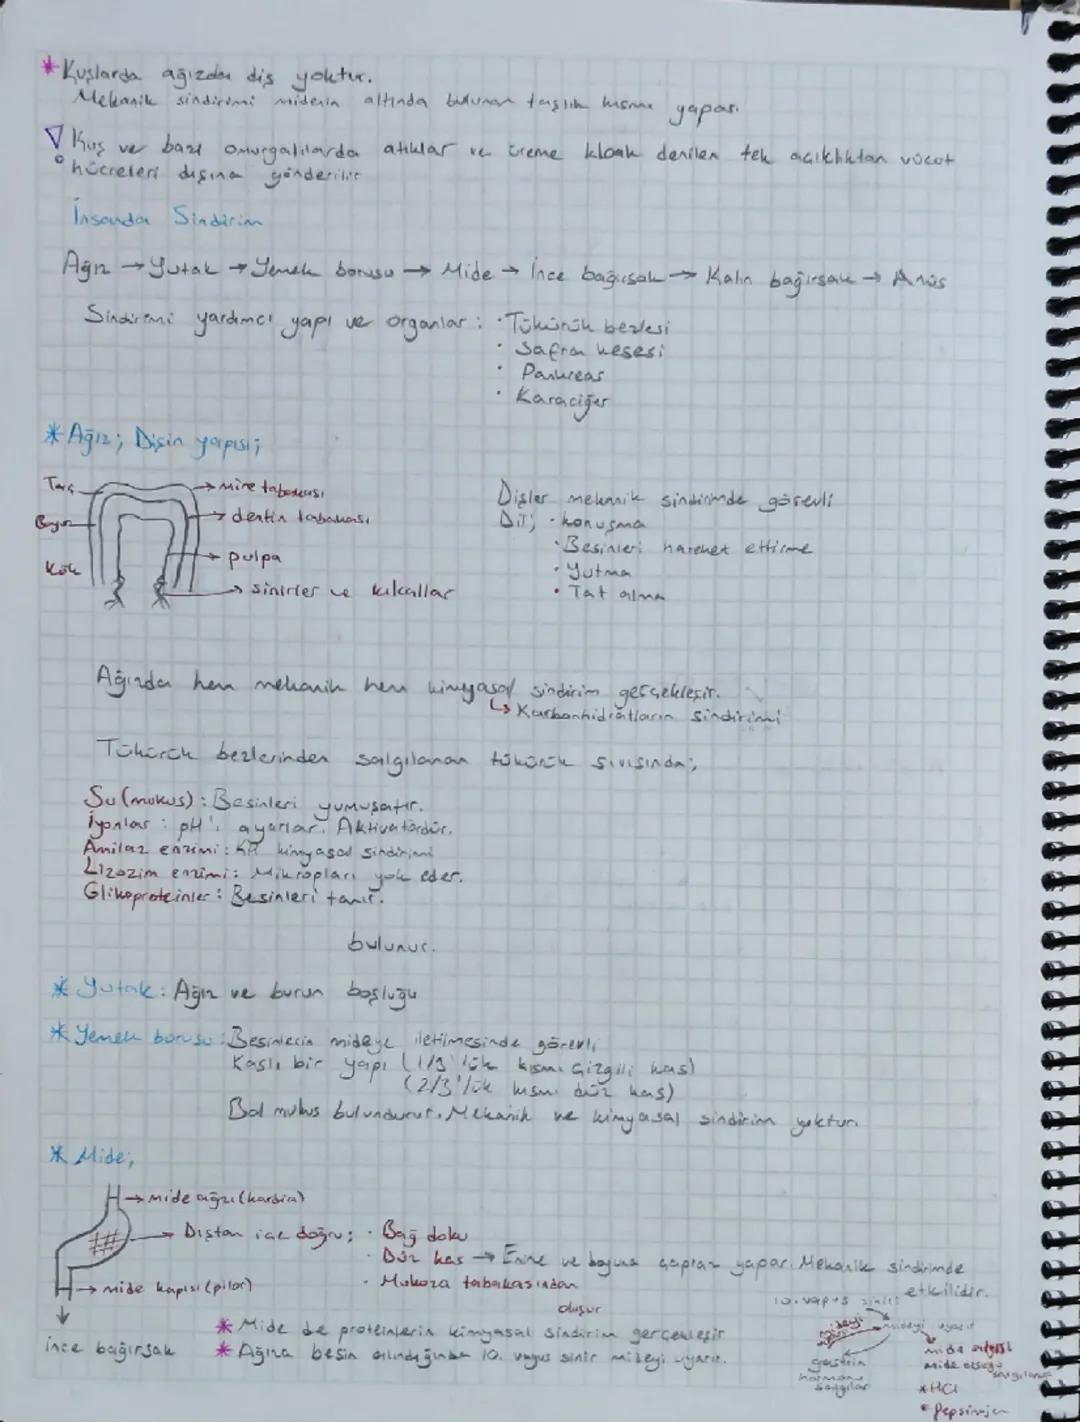 * Kuşlarda ağızda diş yoktur.
Mekanik sindirimi midenin altında bulunan taşlık kısmı yapar.
Kuş ve bazı omurgalılarda atıklar ve üreme kloak denilen tek açıklıktan vücut
hücreleri dışına gönderilir
İnsanda Sindirim
Ağız → Yutak → Yemek borusu → Mide → İnce bağırsak → Kalın bağırsak → Anüs
Sindirimi yardımcı yapı ve organlar : · Tükürük bezlesi
· Safra kesesi
· Pankreas
· Karaciğer
* Ağız; Dişin yapısı;
Taç → mine tabakası
Boyun → dentin tabakası
→ pulpa
Kök → sinirler ve kılcallar
Dişler mekanik sindirimde görevli
Dil; · konuşma
· Besinleri hareket ettirme
· Yutma
· Tat alma
Ağızda hem mekanik hem kimyasal sindirim gerçekleşir.
↳ Karbonhidratların sindirimi
Tükürük bezlerinden salgılanan tükürük sıvısında;
Su (mukus) : Besinleri yumuşatır.
İyonlar : pH'ı ayarlar. Aktivatördür.
Amilaz enzimi : KH kimyasal sindirimi
Lizozim enzimi : Mikropları yok eder.
Glikoproteinler : Besinleri tanır.
bulunur.
* Yutak : Ağız ve burun boşluğu
* Yemek borusu : Besinlerin mideye iletilmesinde görevli
Kaslı bir yapı (1/3'lük kısmı çizgili kas)
(2/3'lük kısmı düz kas)
Bol mukus bulundurur. Mekanik ve kimyasal sindirim yoktur.
* Mide;
→ mide ağzı (kardia)
→ Dıştan içe doğru; · Bağ doku
· Düz kas → Enine ve boyuna yapar. Mekanik sindirimde
etkilidir.
→ mide kapısı (pilor)
· Mukoza tabakasından
oluşur
ince bağırsak
* Mide de proteinlerin kimyasal sindirim gerçekleşir
* Ağıza besin alındığında 10. vagus sinir mideyi uyarır.
10. vagus siniri
mideyi uyarır
mideyi
gastrin
hormonu
salgılar
mide
mide özsuyu
* HCl
* Pepsinojen